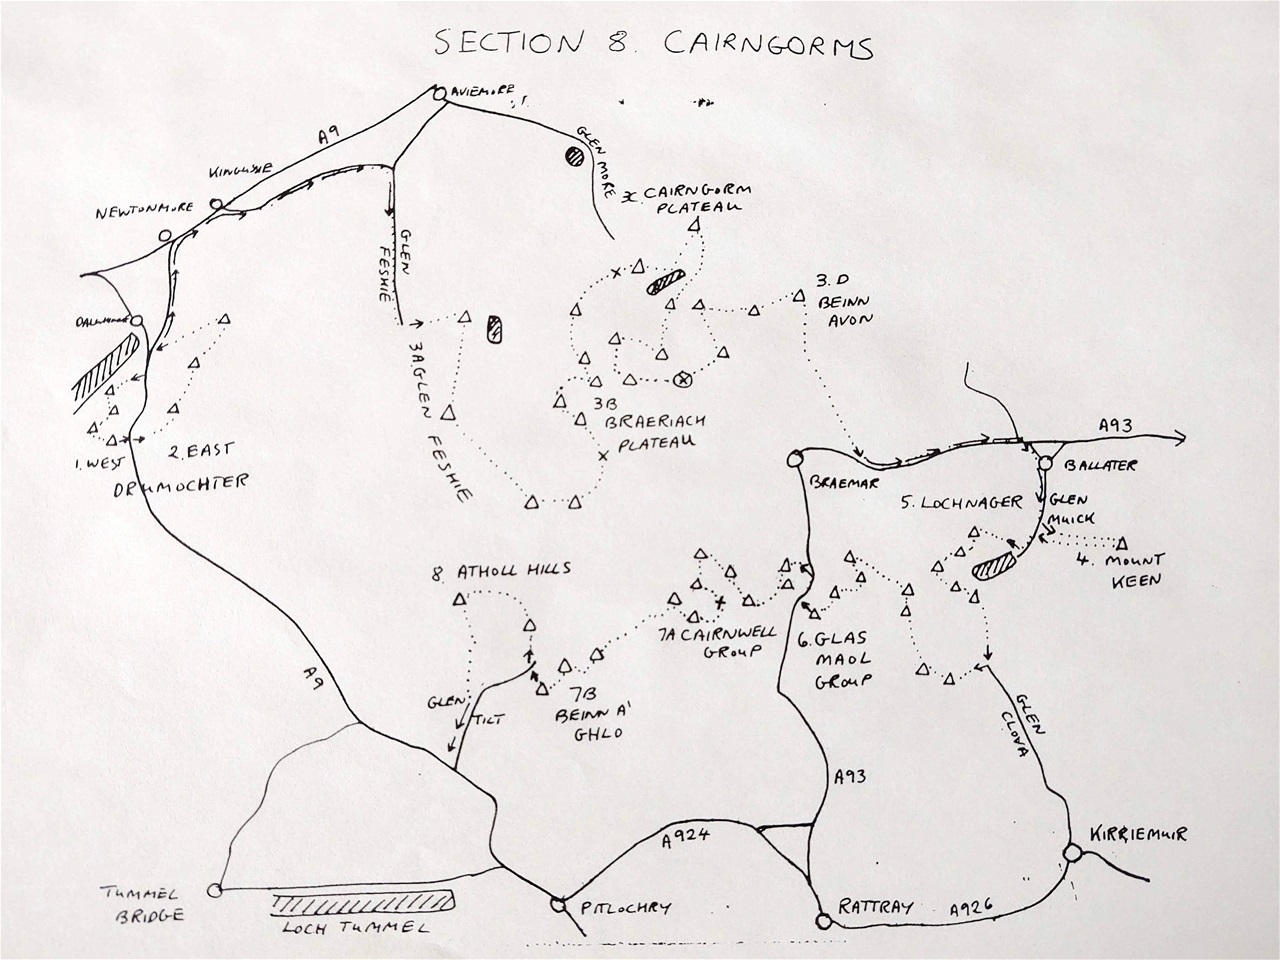 SECTION 8. CAIRNGORMS
AVIEMORE
A9
GLEN MORE
KINGUSSIE
NEWTONMORE
3C CAIRNGORM
PLATEAU
GLEN
FESHIE
3.D
BEINN
AVON
3A GLEN FESHIE
3B
BRAERIACH
PLATEAU
1. WEST
2. EAST
DRUMOCHTER
A93
BRAEMAR
BALLATER
5. LOCHNAGER
GLEN
MUICK
4. MOUNT
KEEN
8. ATHOLL HILLS
7A CAIRNWELL
GROUP
6. GLAS
MAOL
GROUP
7B
BEINN A'
GHLO
GLEN
TILT
A9
GLEN
CLOVA
A93
A924
KIRRIEMUIR
TUMMEL
BRIDGE
LOCH TUMMEL
PITLOCHRY
RATTRAY
A926